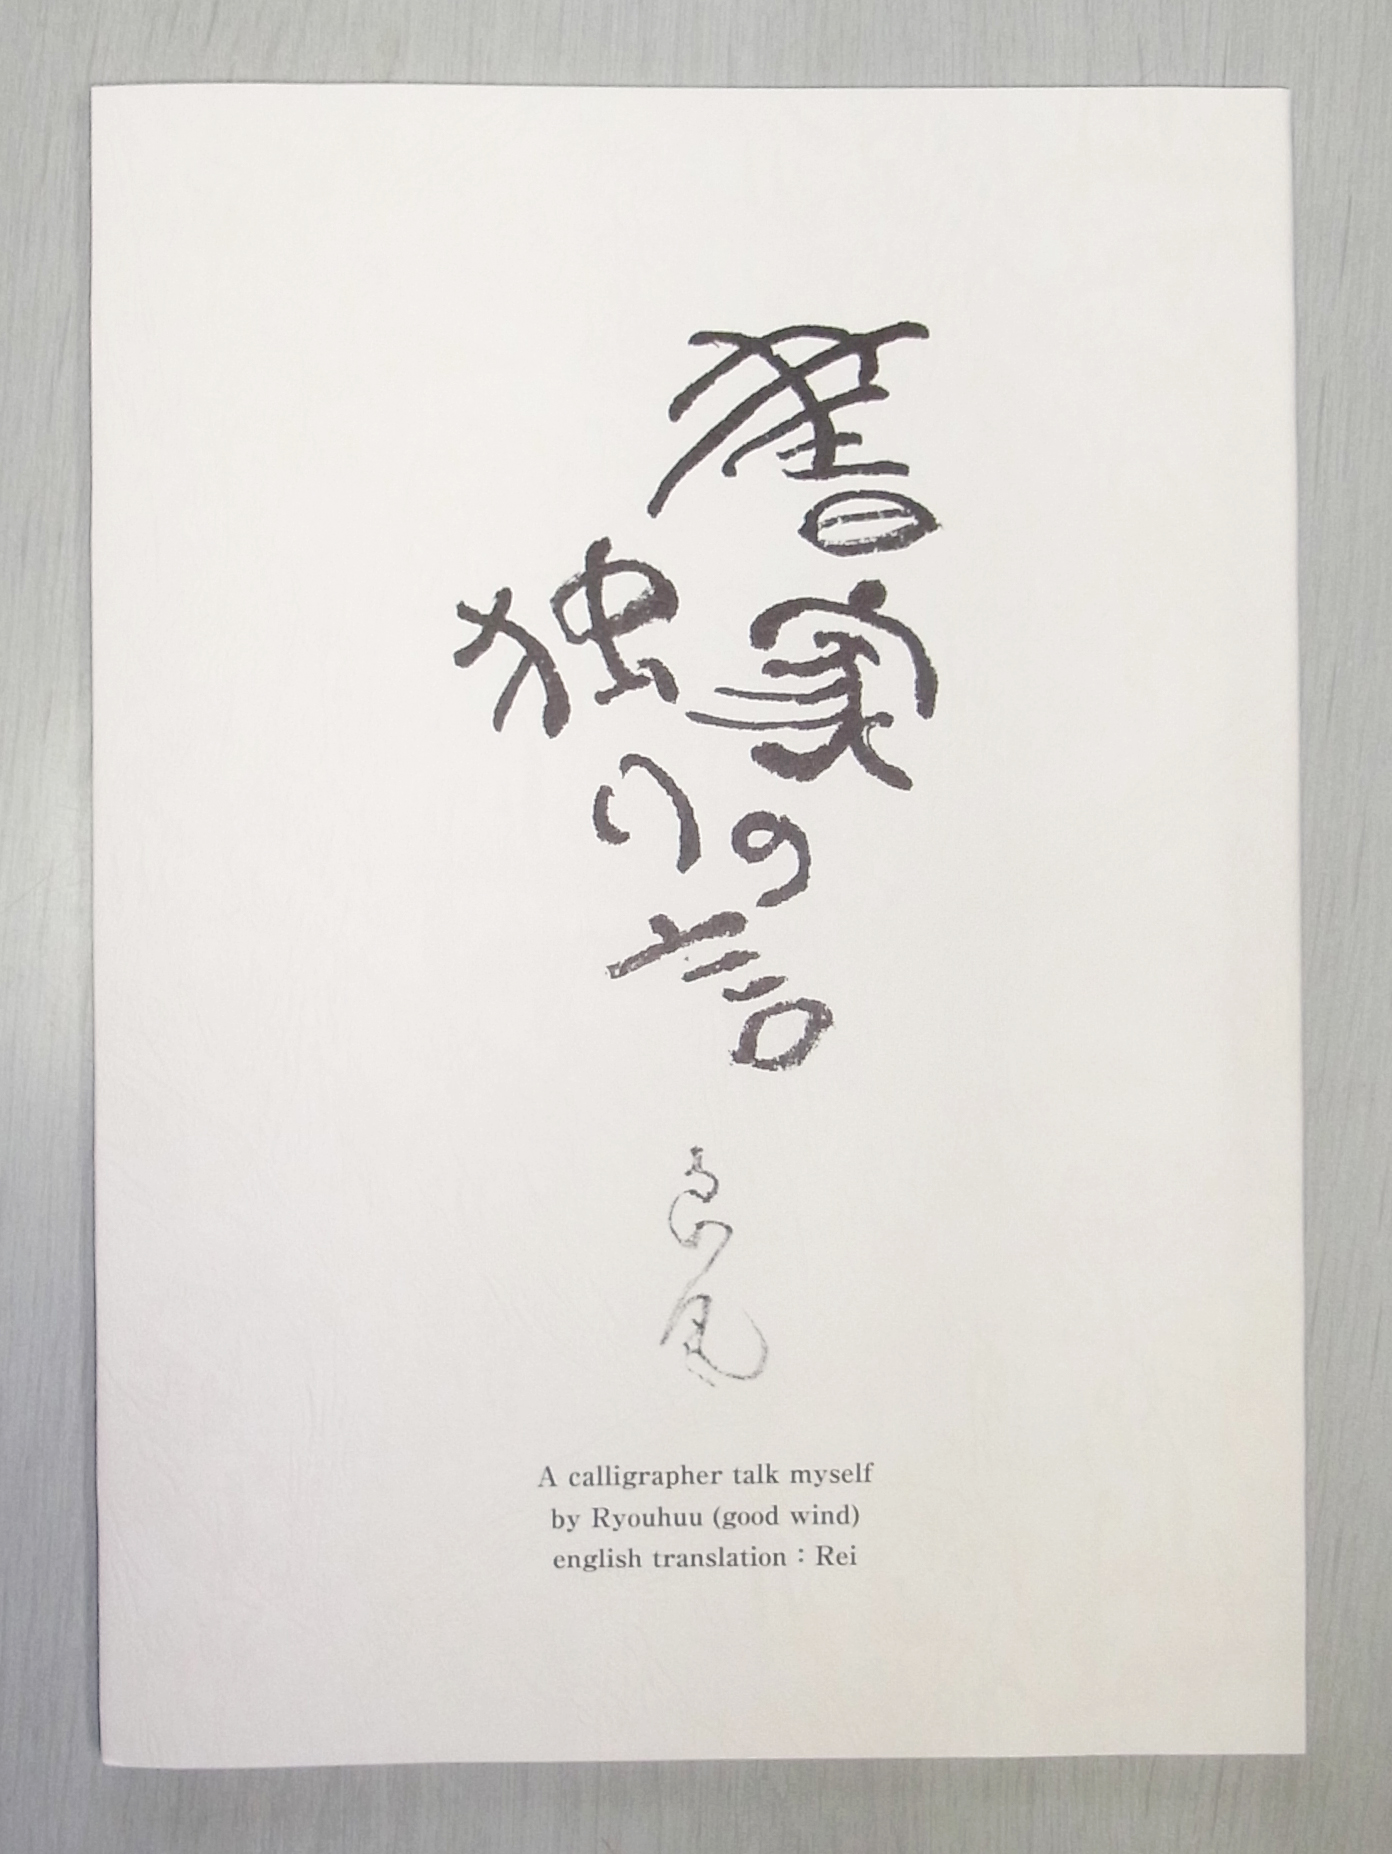 書家の
独り言
良風
A calligrapher talk myself
by Ryouhuu (good wind)
english translation : Rei